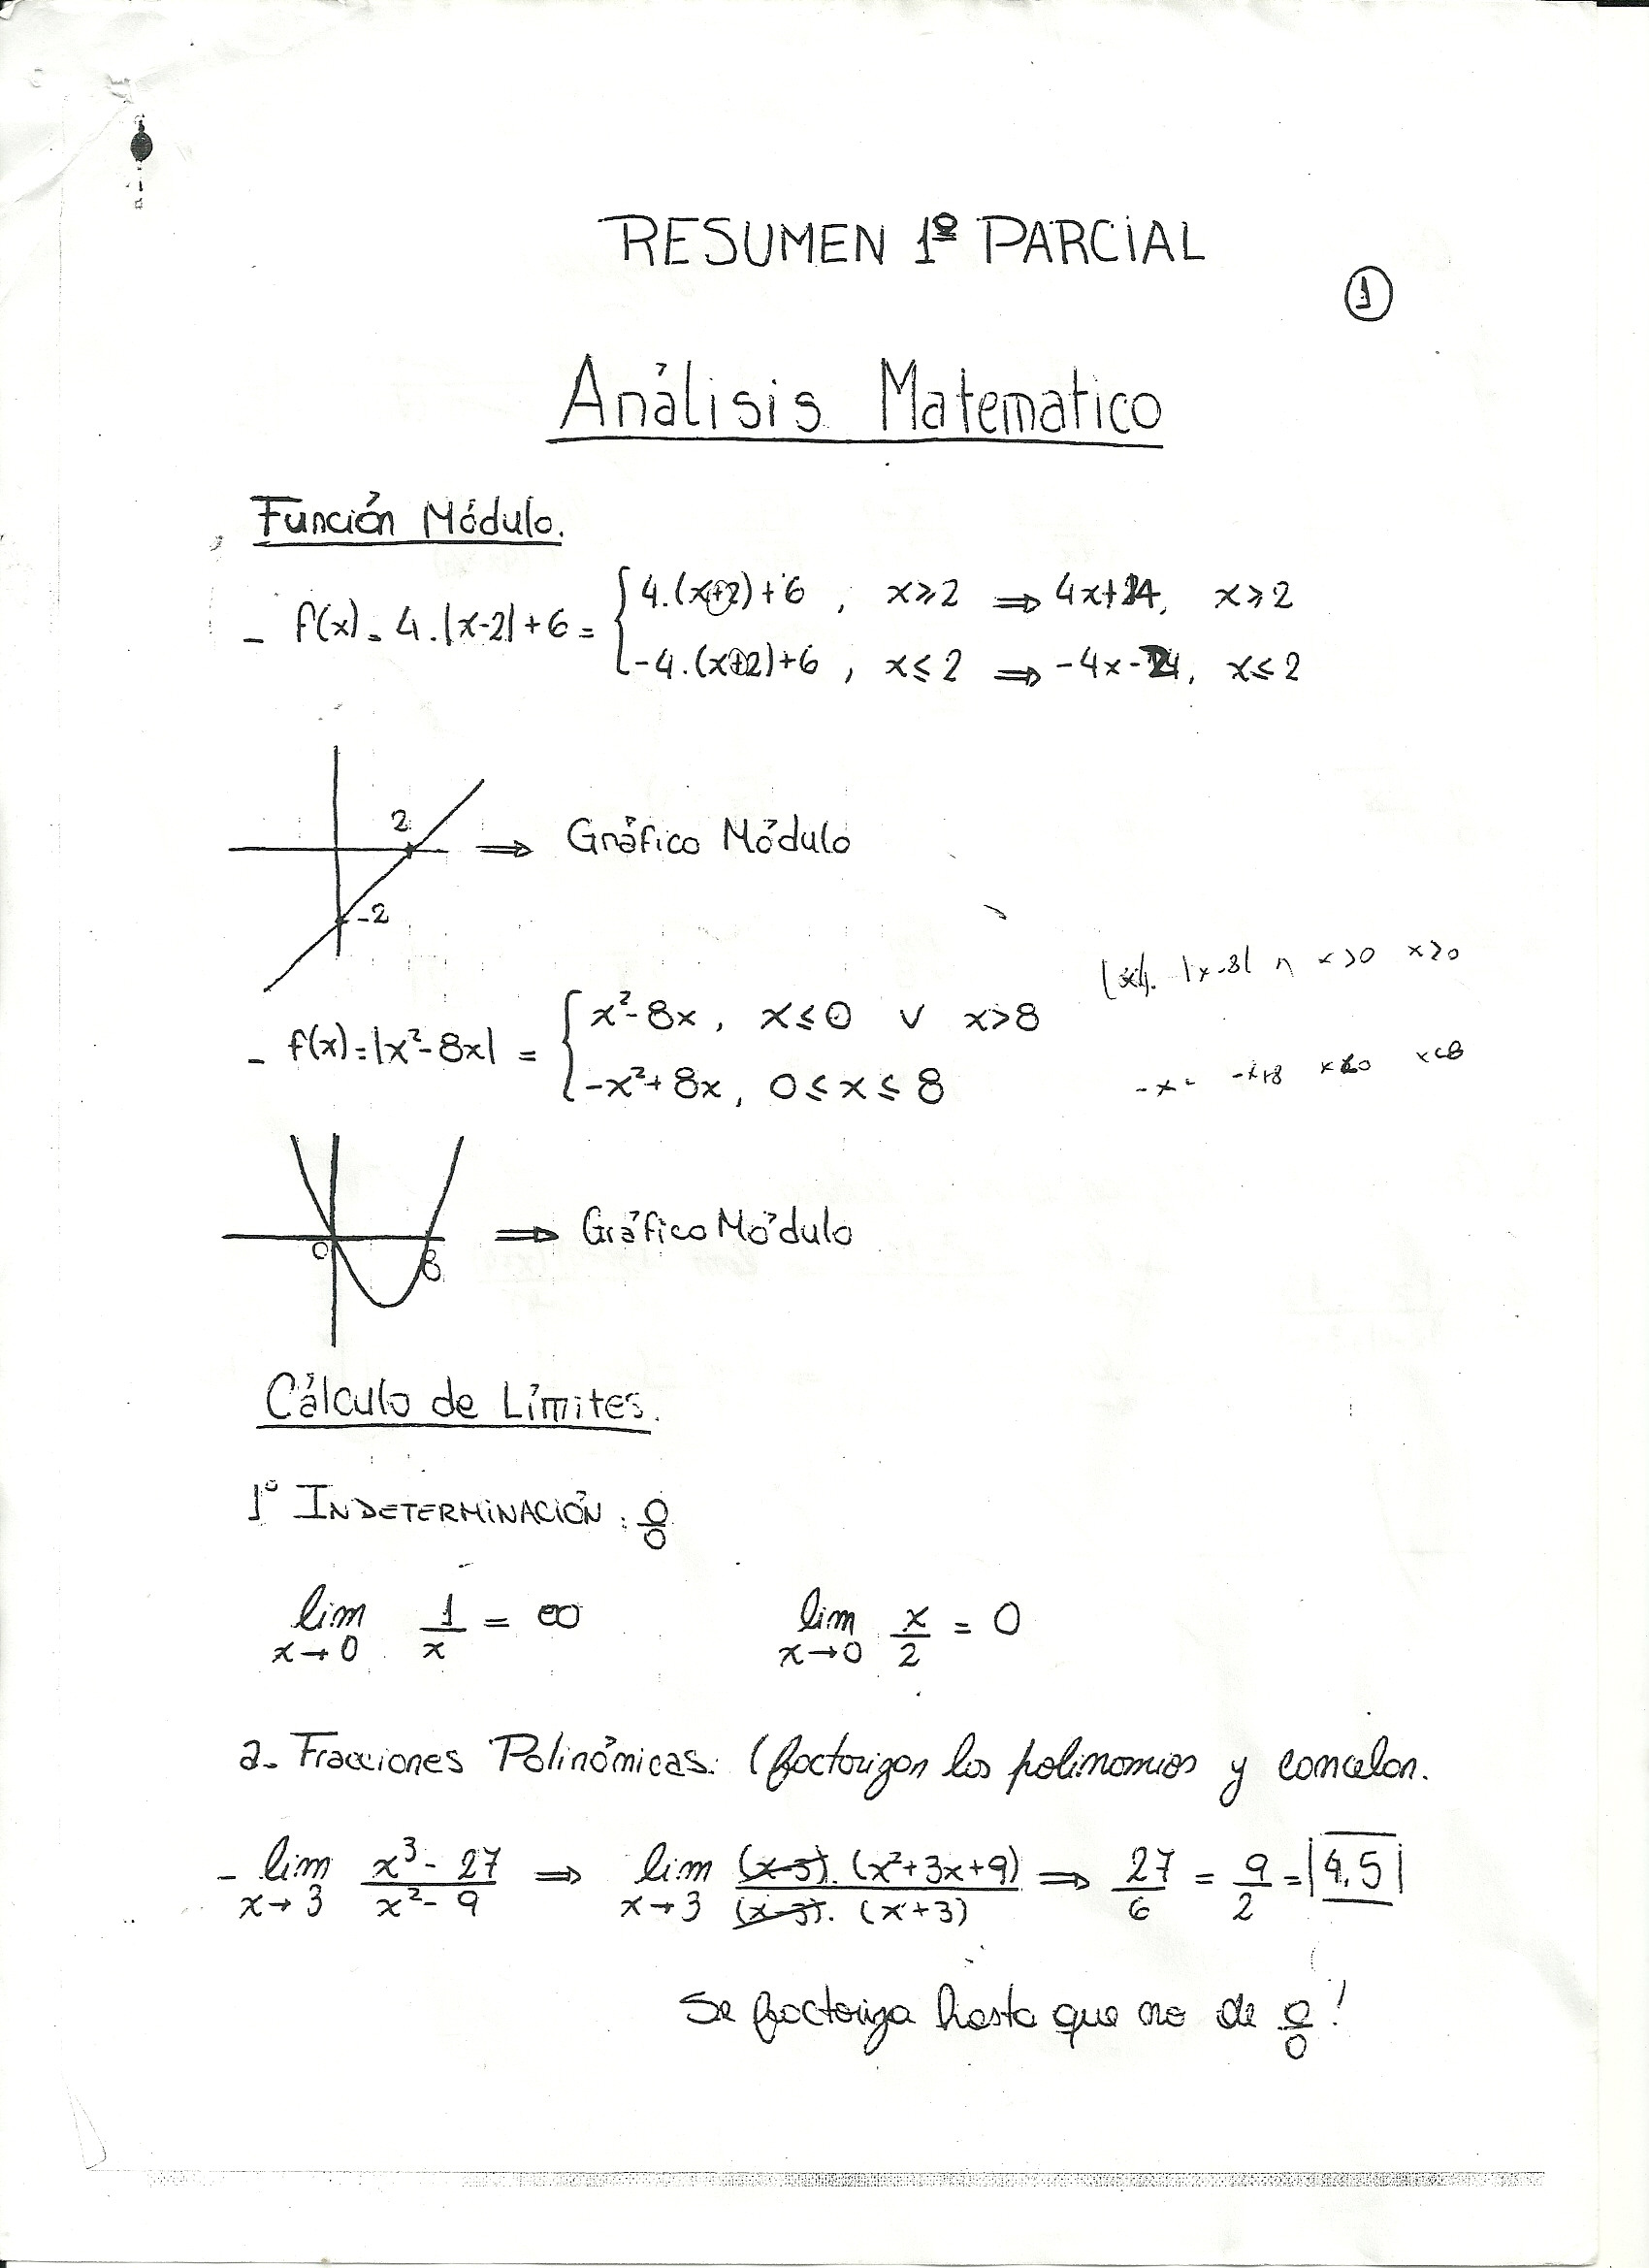 RESUMEN 1º PARCIAL
1
Análisis Matematico
Función Módulo.
- f(x) = 4.|x-2|+6 = { 4.(x+2)+6 , x≥2 ⇒ 4x+14, x≥2
-4.(x+2)+6 , x≤2 ⇒ -4x-24, x≤2
2
⇒ Gráfico Módulo
-2
|x-8| x>0 x≥0
- f(x) = |x²-8x| = { x²-8x , x≤0 v x>8
-x²+8x , 0≤x≤8
-x -x+8 x<8
0 8 ⇒ Gráfico Módulo
Cálculo de Límites.
1º INDETERMINACIÓN : 0/0
lim x→0 1/x = ∞ lim x→0 x/2 = 0
a- Fracciones Polinómicas: (factorizan los polinomios y cancelan.
- lim x→3 x³-27 / x²-9 ⇒ lim x→3 (x-3).(x²+3x+9) / (x-3).(x+3) ⇒ 27/6 = 9/2 = |4,5|
Se factoriza hasta que no de 0/0!